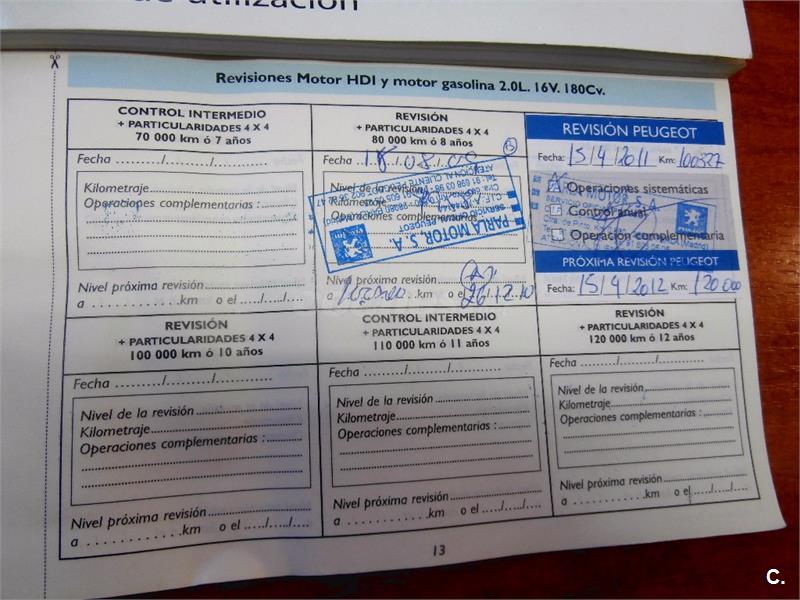 de utilización
Revisiones Motor HDI y motor gasolina 2.0L. 16V. 180Cv.
CONTROL INTERMEDIO
+ PARTICULARIDADES 4 X 4
70 000 km ó 7 años
Fecha ........./......../............
Kilometraje
Operaciones complementarias :
Nivel próxima revisión
a . . . . . . . . . . . .km o el ...../...../....
REVISIÓN
+ PARTICULARIDADES 4 X 4
80 000 km ó 8 años
Fecha 18/08/09
Nivel de la revisión
Kilometraje
Operaciones complementarias
PARLA MOTOR, S. A.
SERVICIO OFICIAL PEUGEOT
ATENCION AL CLIENTE
Nivel próxima revisión
a km o el 26.12.10
REVISIÓN PEUGEOT
Fecha: 15/4/2011 Km: 100327
Operaciones sistemáticas
Control anual
Operación complementaria
PRÓXIMA REVISIÓN PEUGEOT
Fecha: 15/4/2012 Km: 120.000
REVISIÓN
+ PARTICULARIDADES 4 X 4
100 000 km ó 10 años
Fecha ........./......../............
Nivel de la revisión
Kilometraje
Operaciones complementarias :
Nivel próxima revisión
a . . . . . . . . . . . .km o el ...../...../....
CONTROL INTERMEDIO
+ PARTICULARIDADES 4 X 4
110 000 km ó 11 años
Fecha ........./......../............
Nivel de la revisión
Kilometraje
Operaciones complementarias :
Nivel próxima revisión
a . . . . . . . . . . . .km o el ...../...../....
REVISIÓN
+ PARTICULARIDADES 4 X 4
120 000 km ó 12 años
Fecha ........./......../............
Nivel de la revisión
Kilometraje
Operaciones complementarias :
Nivel próxima revisión
a . . . . . . . . . . . .km o el ...../...../....
13
C.